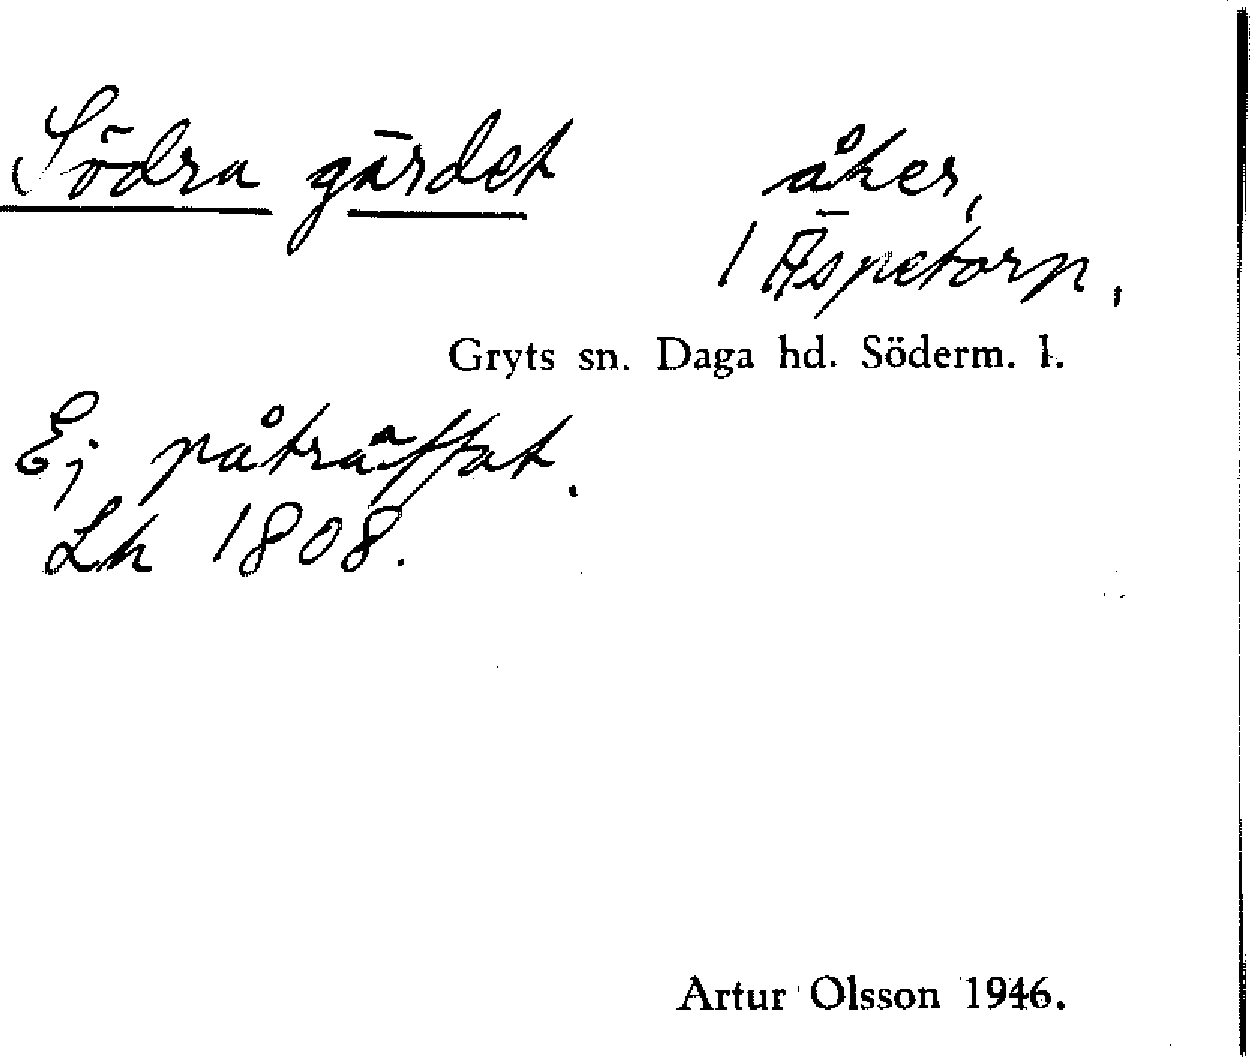 Södra gärdet åker,
1 Äspetorp.
Gryts sn. Daga hd. Söderm. l.
Ej påträffat.
Lh 1808.
Artur Olsson 1946.